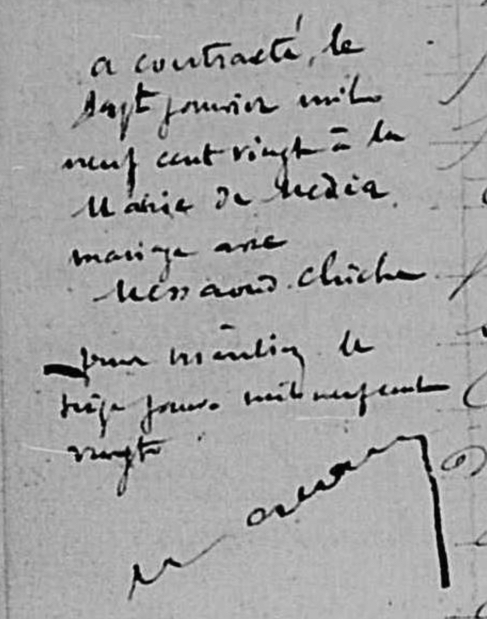 a contracté, le
sept janvier mil
neuf cent vingt à la
Mairie de Médéa
mariage avec
Messaoud Chiche
pour mention le
seize janv. mil neuf cent
vingt